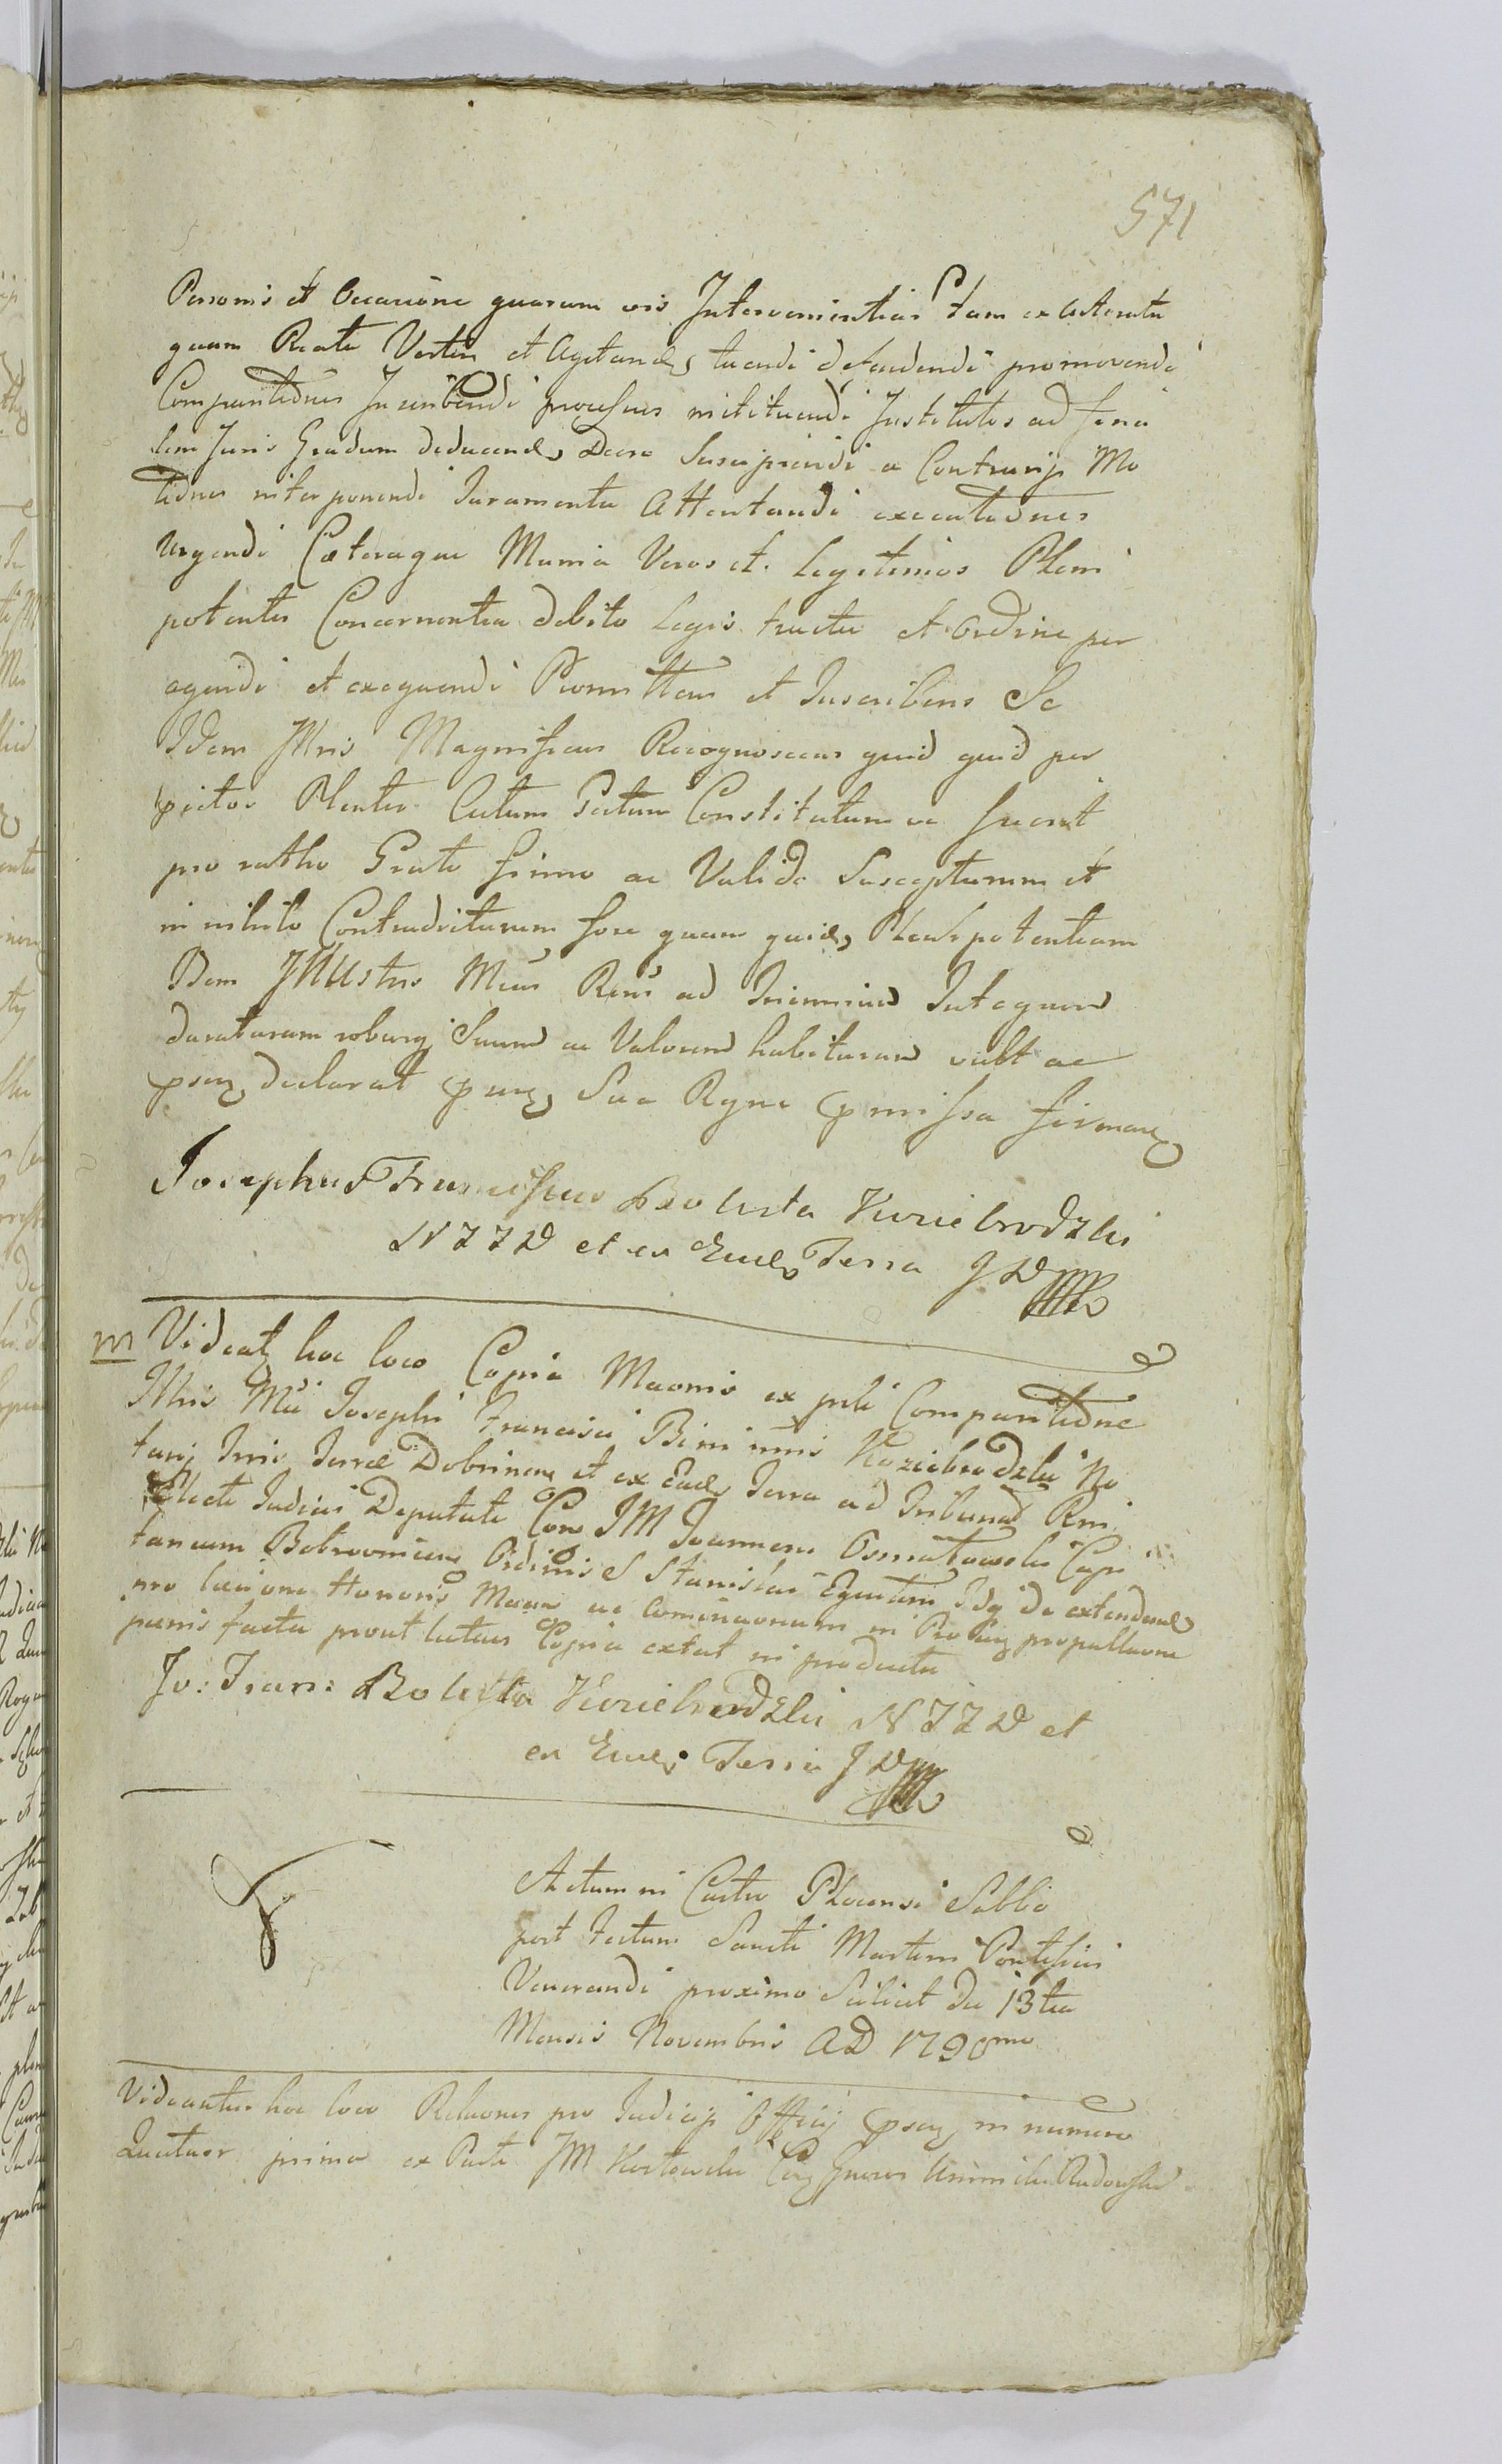 571
Personis et Occasione quarum vis Intervenientiar tam ex Actoratu
quam Reatu Verten et Agitand, tuendi defendendi promovendi
Comparitiones Inscribendi processus instituendi Institutos ad fina
lem Juris Gradum deducend, Decre Suscipiendi a Contrarijs Mo
tiones interponendi Juramenta Attentandi executiones
Urgendi Cæteraque Munia Veros et Legitimos Pleni
potentes Concernentia debito Legis tractu et Ordine per
agendi et exequendi Promittens et Inscribens Se
Idem Illris Magnificus Recognoscens quid quid per
pctos Plentes Actum Factum Constitutum ve fuerit
pro ratho Grato firmo ac Valido Suscepturum et
in nihilo Contradicturum fore quam quid, Plenipotentiam
Idem Illustris Mcus Recns ad Triennium Integrum
duraturam roburq Suum ac Valorem habituram vult ac
psenq declarat p usq Sua Rgne pmissa firmans
Josephus Franciscus Bolesta Koziebrodzki
N Z Z D et ex Eade Terra J D
m Videatq hoc loco Copia Maonis ex pnli Comparitione
Illris Mci Josephi Francisci Bini nnis Koziebrodzki No
tarij Trris Terræ Dobrinens et ex Eade Terra ad Tribunal Rni
Electi Judicis Deputati Con JM Joannem Ossnitowski Capi
taneum Bobrovnicens Ordinis S Stanislai Equitem Idq de extendend
pro læsione Honoris Maon ac Comminaonum in Pro propullaone
pænis facta prout latius Copia extat in producta
Jo: Fran: Bolesta Koziebrodzki N Z Z D et
ex Eade Terra J D
Actum in Castro Plocensi Sabbo
post Festum Sancti Martini Pontificis
Venerandi proximo Scilicet Die 13tia
Mensis Novembris AD 1790mo
Videantur hoc loco Relaones pro Judicijs Officij psenq in numero
Quatuor prima ex Parte JM